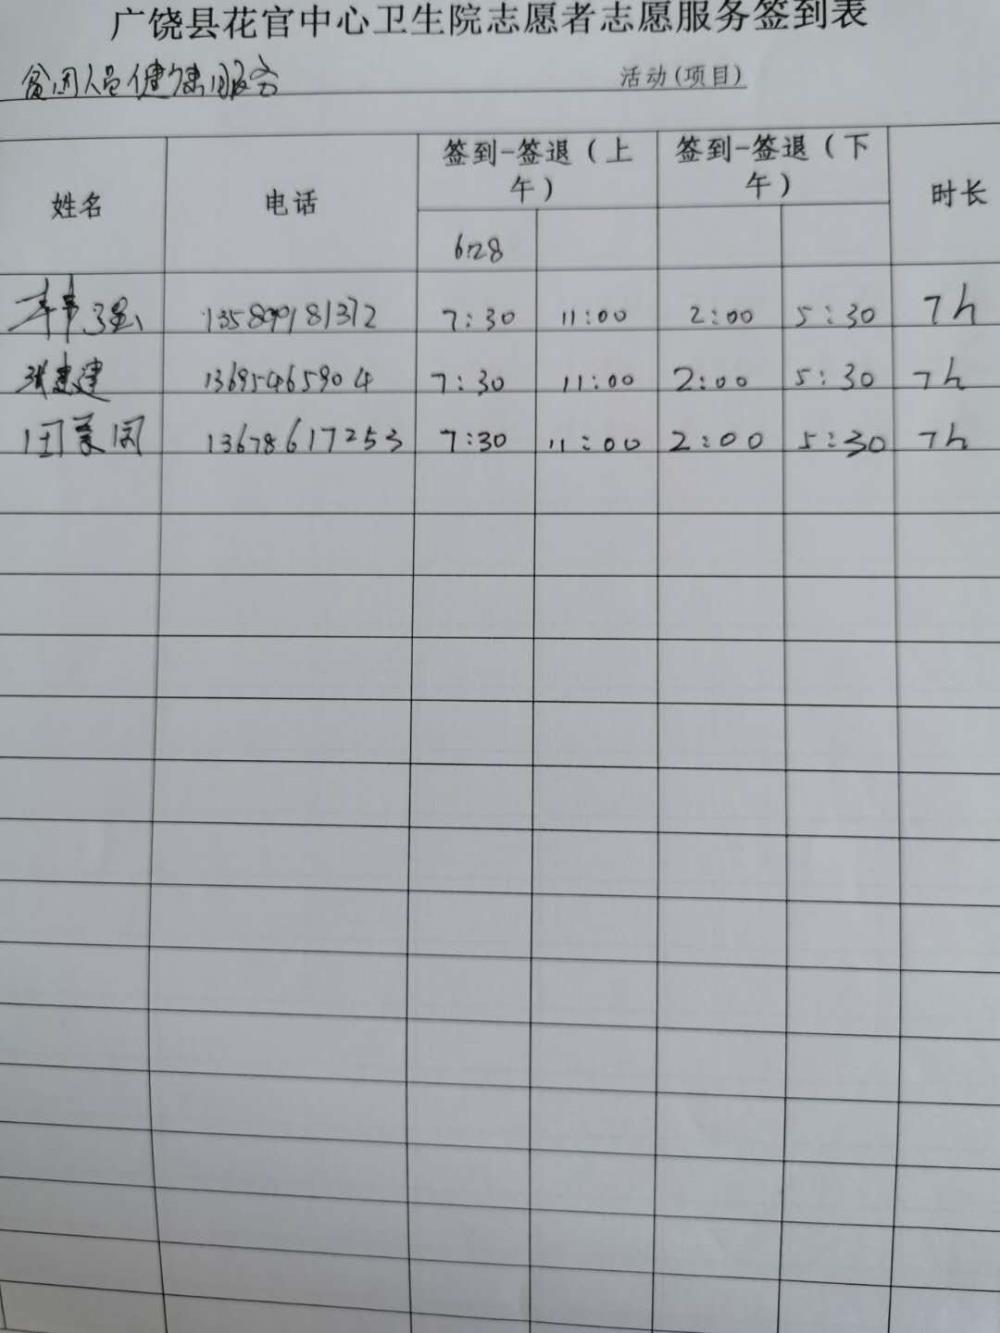 广饶县花官中心卫生院志愿者志愿服务签到表
贫困人员健康服务 活动(项目)
姓名 电话 签到-签退（上午） 签到-签退（下午） 时长
6.28
13589981372 7:30 11:00 2:00 5:30 7h
张建建 13695465904 7:30 11:00 2:00 5:30 7h
田爱国 13678617253 7:30 11:00 2:00 5:30 7h